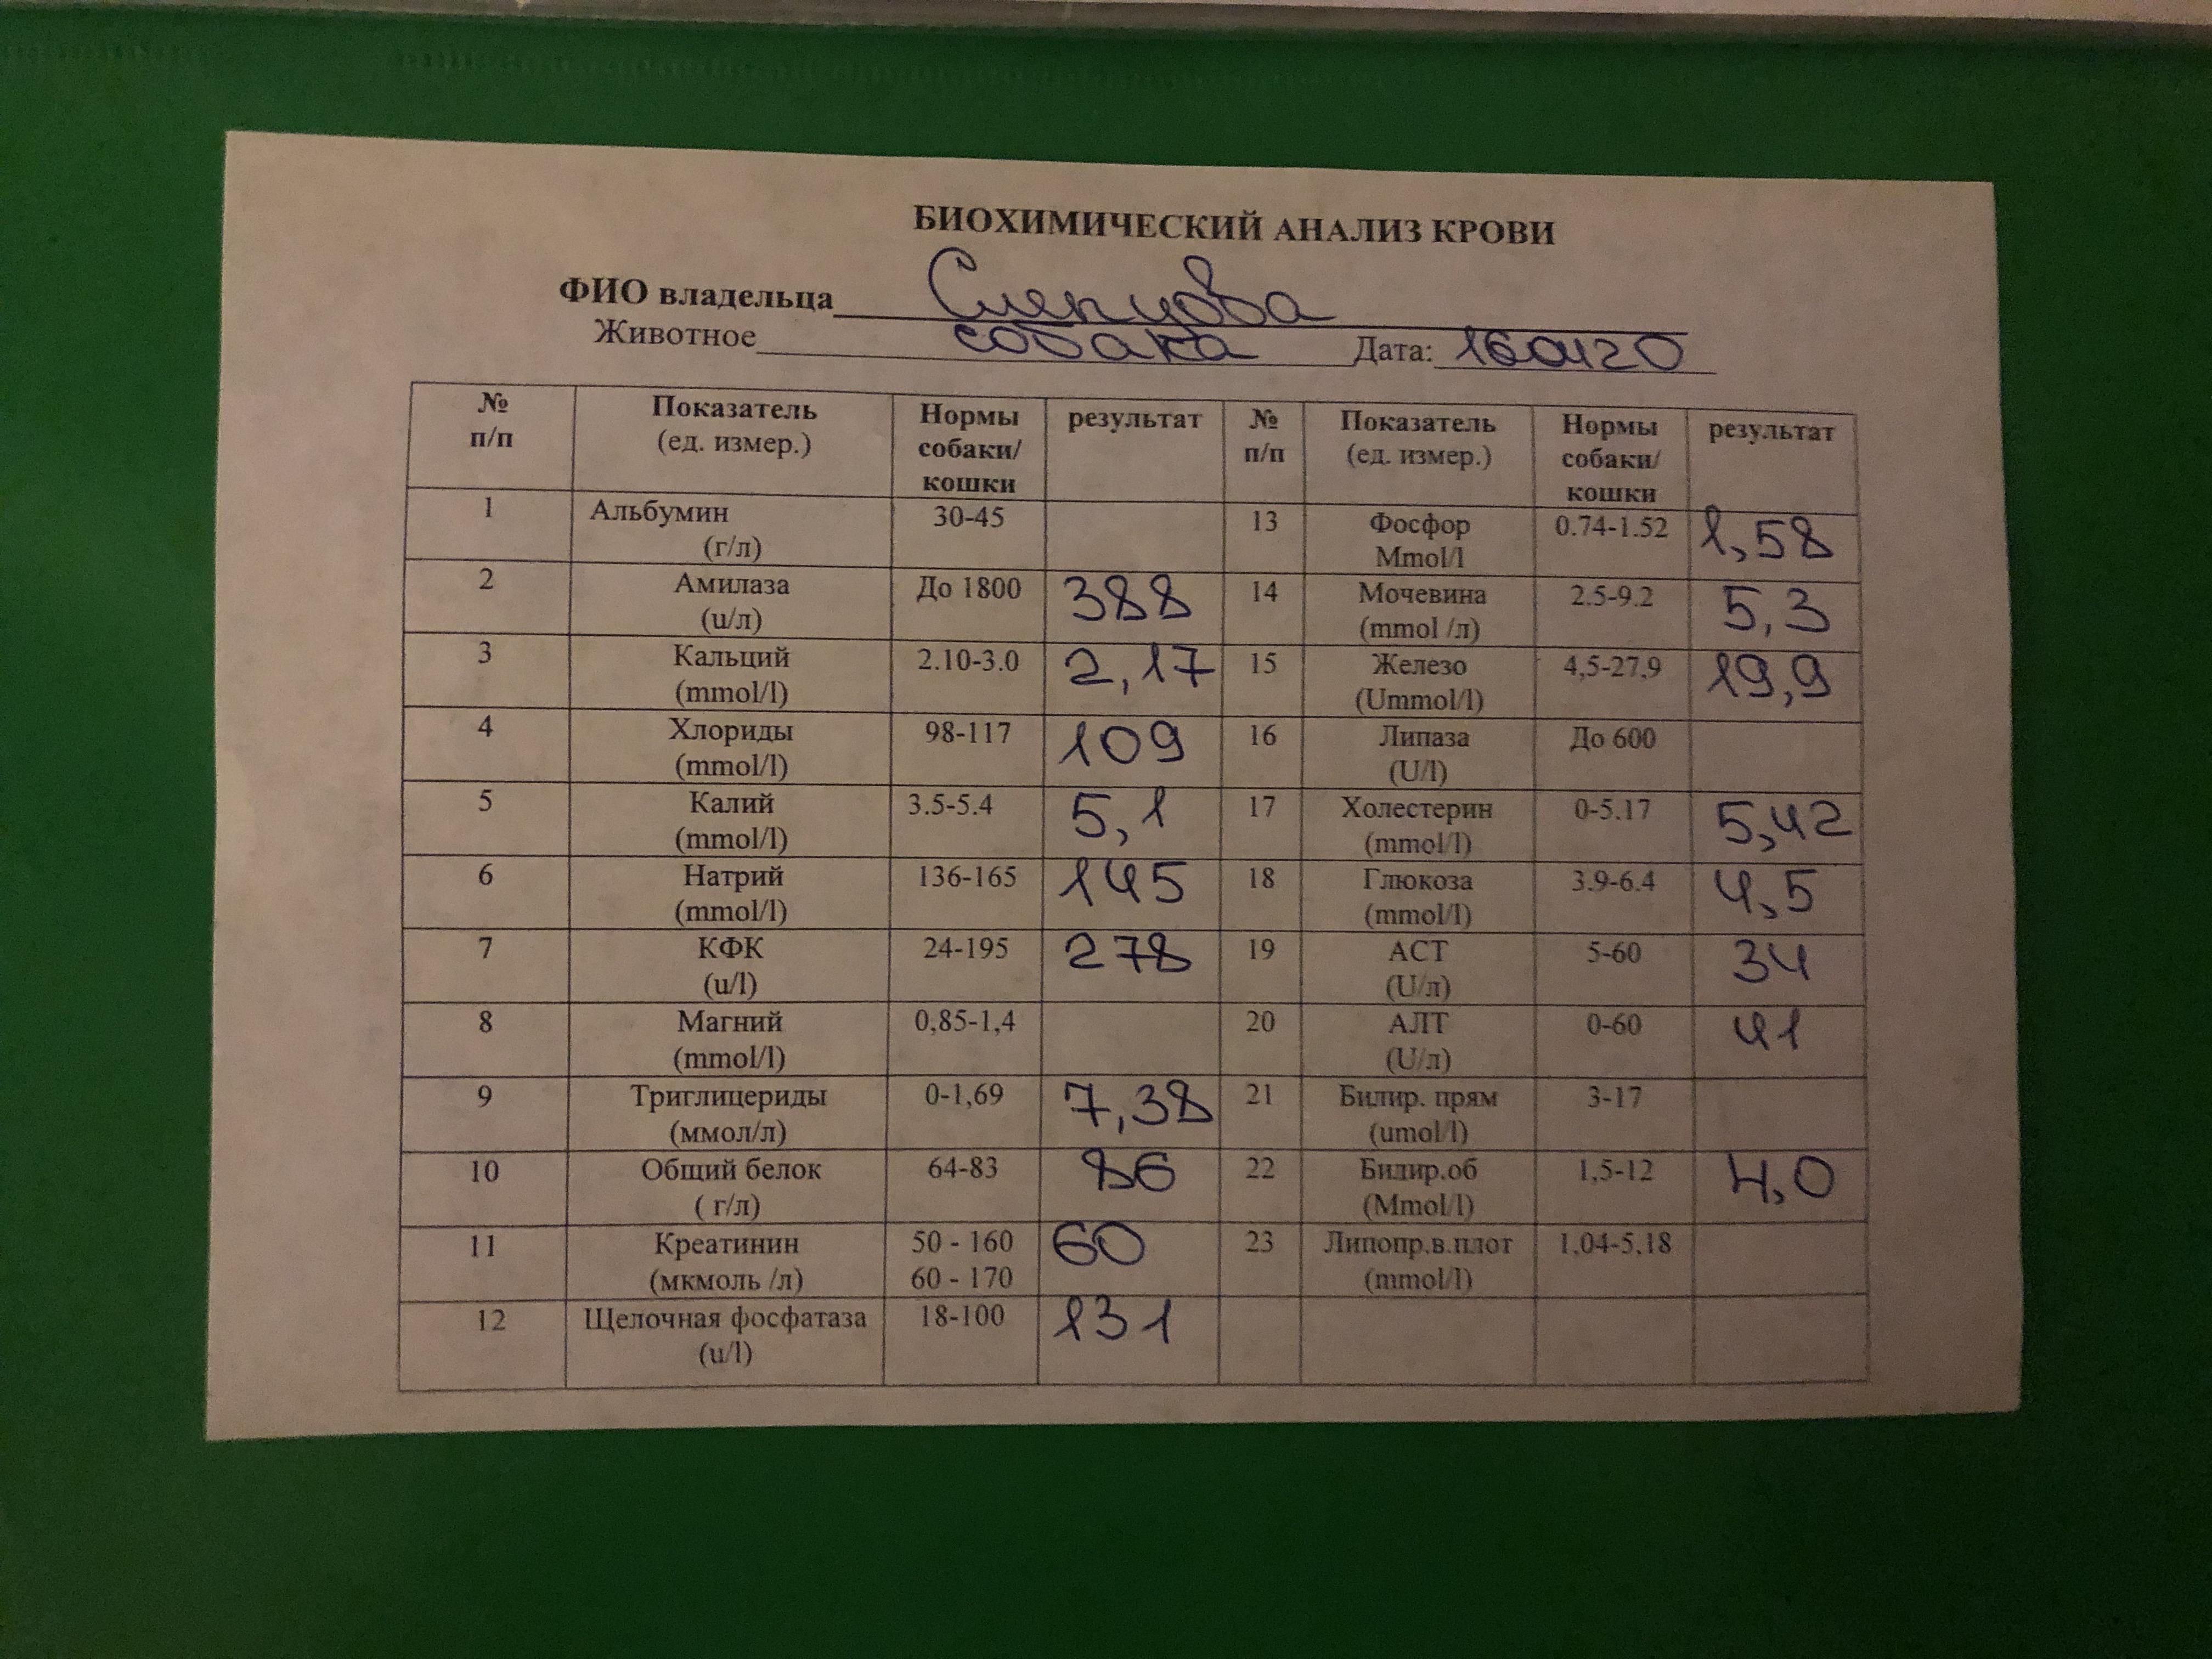 БИОХИМИЧЕСКИЙ АНАЛИЗ КРОВИ
ФИО владельца Слепцова
Животное собака Дата: 160420
№ п/п Показатель (ед. измер.) Нормы собаки/ кошки результат № п/п Показатель (ед. измер.) Нормы собаки/ кошки результат
1 Альбумин (г/л) 30-45 13 Фосфор Mmol/l 0.74-1.52 1,58
2 Амилаза (u/л) До 1800 388 14 Мочевина (mmol /л) 2.5-9.2 5,3
3 Кальций (mmol/l) 2.10-3.0 2,17 15 Железо (Ummol/l) 4,5-27,9 19,9
4 Хлориды (mmol/l) 98-117 109 16 Липаза (U/l) До 600
5 Калий (mmol/l) 3.5-5.4 5,1 17 Холестерин (mmol/l) 0-5.17 5,42
6 Натрий (mmol/l) 136-165 145 18 Глюкоза (mmol/l) 3.9-6.4 4,5
7 КФК (u/l) 24-195 278 19 АСТ (U/л) 5-60 34
8 Магний (mmol/l) 0,85-1,4 20 АЛТ (U/л) 0-60 41
9 Триглицериды (ммол/л) 0-1,69 7,38 21 Билир. прям (umol/l) 3-17
10 Общий белок ( г/л) 64-83 86 22 Билир.об (Mmol/l) 1,5-12 4,0
11 Креатинин (мкмоль /л) 50 - 160 60 - 170 60 23 Липопр.в.плот (mmol/l) 1,04-5,18
12 Щелочная фосфатаза (u/l) 18-100 131